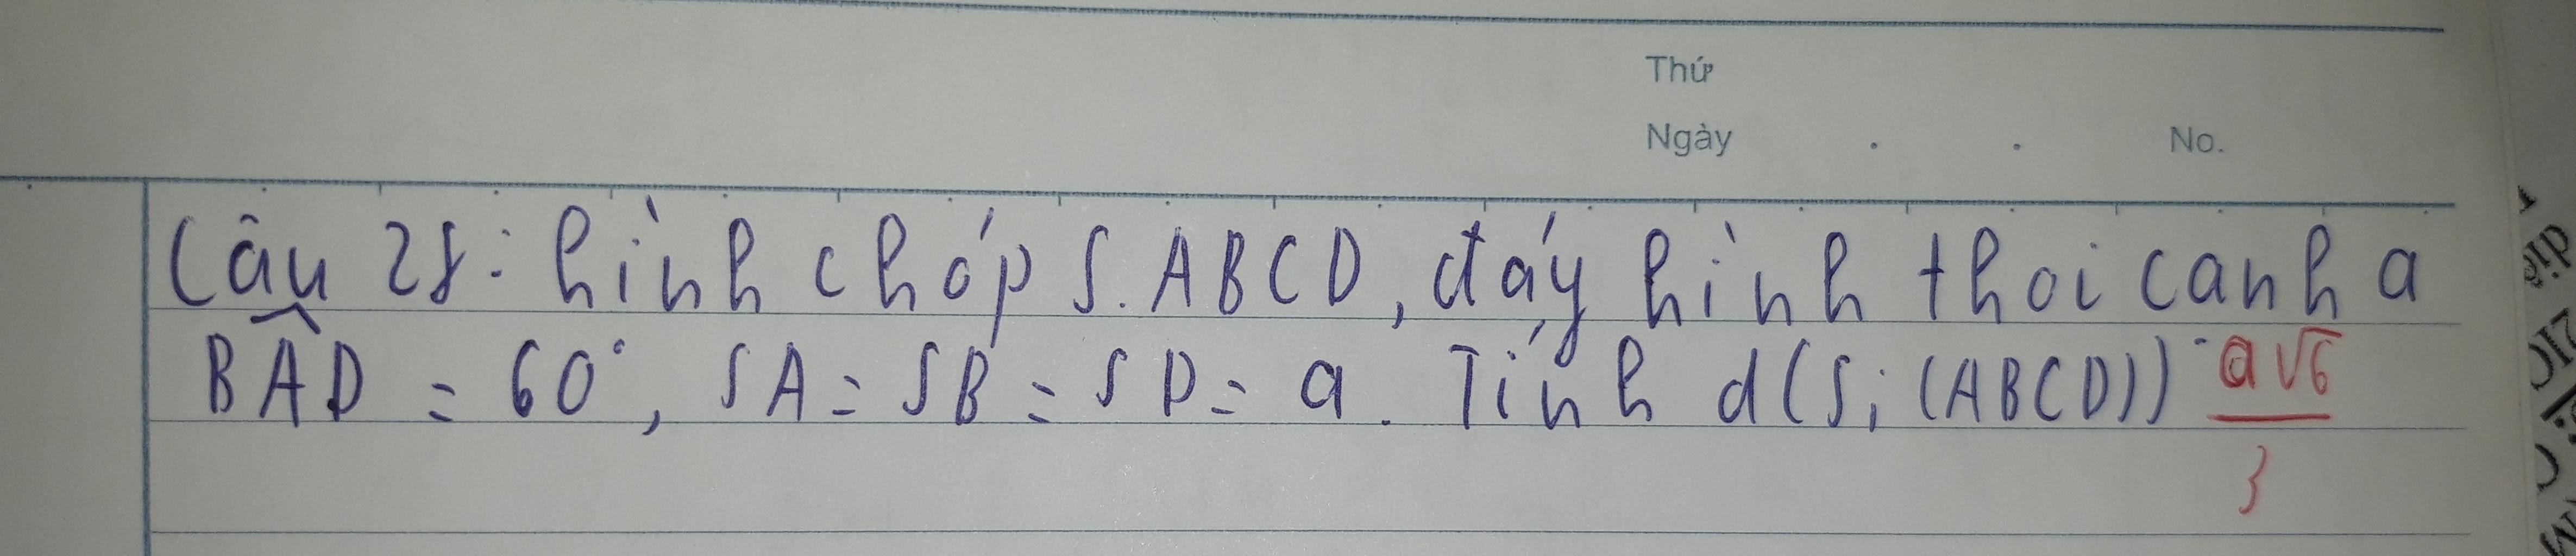 Thứ
Ngày . . No.
Câu 28: hình chóp S.ABCD, đáy hình thoi cạnh a
BAD̂ = 60°, SA = SB = SD = a. Tính d(S; (ABCD)) a√6/3